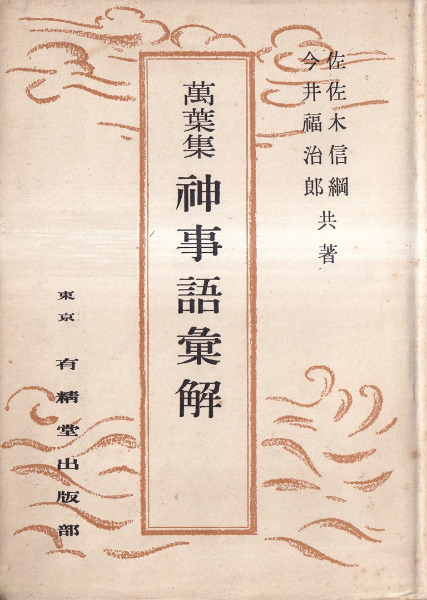 佐佐木信綱
今井福治郎
共著
萬葉集 神事語彙解
東京 有精堂出版部